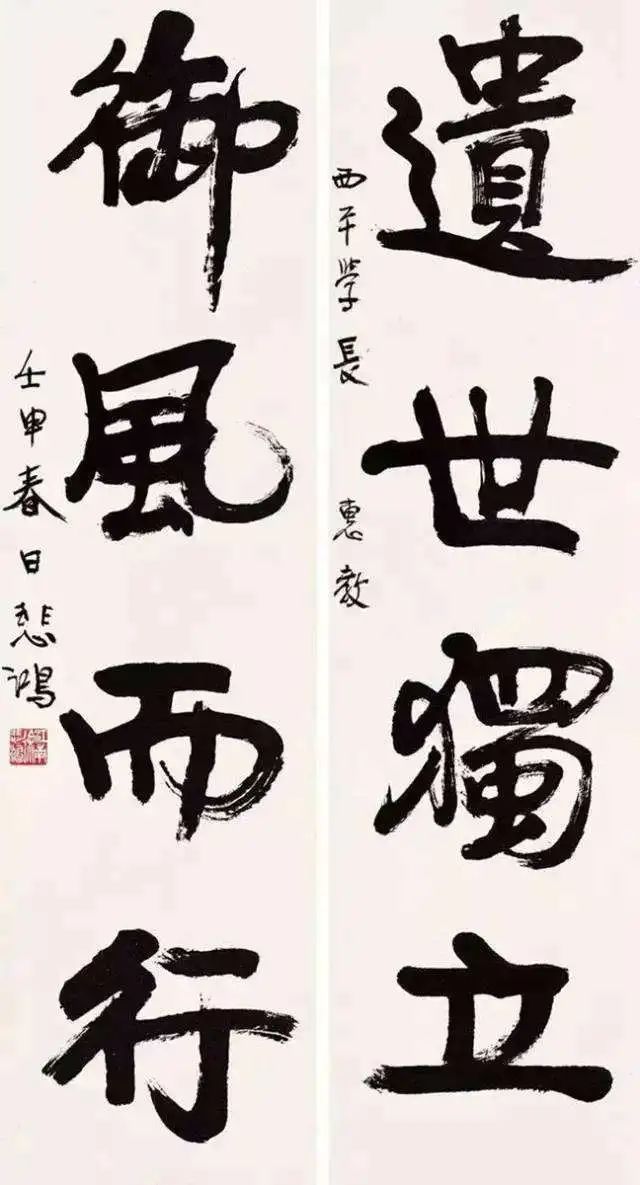 遺世獨立
西平学長 惠教
御風而行
壬申春日悲鴻